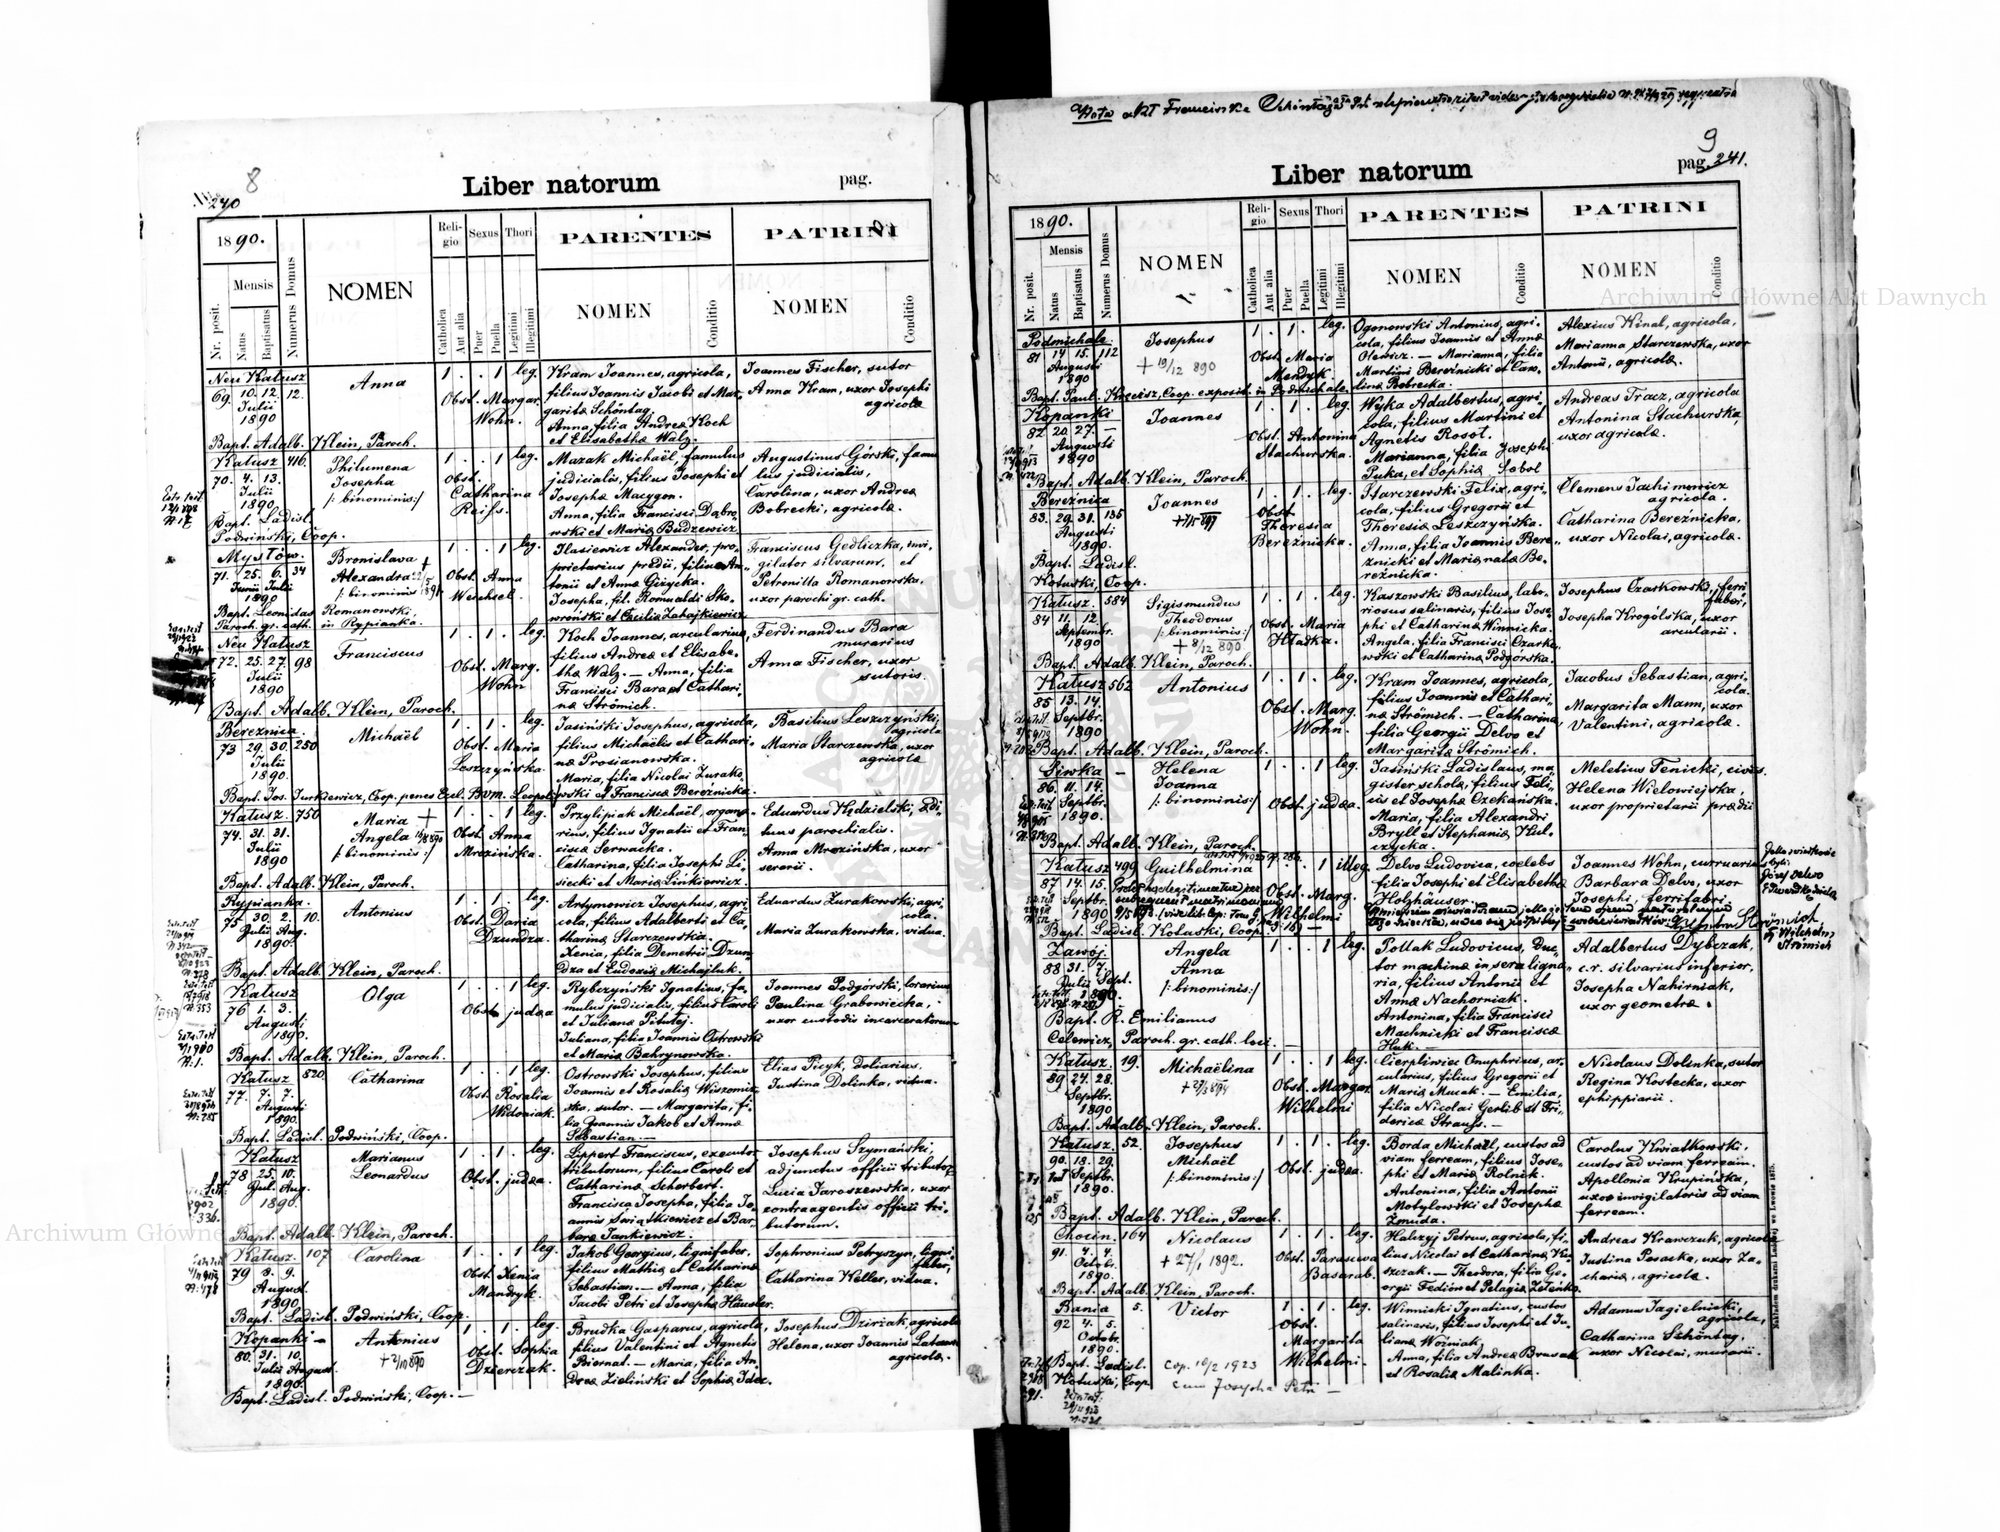 8
240
Liber natorum
pag.
1890.
Reli-
gio
Sexus
Thori
PARENTES
PATRINI
Mensis
Nr. posit.
Natus
Baptisatus
Numerus Domus
NOMEN
Catholica
Aut alia
Puer
Puella
Legitimi
Illegitimi
NOMEN
Conditio
NOMEN
Conditio
Neu Kałusz
69. 10. 12. 12.
Julii
1890
Anna
1 . . 1 leg.
Obst. Margar.
Wohn.
Kram Joannes, agricola,
filius Joannis Jacobi et Mar-
garitæ Schöntag.
Anna, filia Andreæ Koch
et Elisabethæ Walz.
Joannes Fischer, sutor
Anna Kram, uxor Josephi
agricolæ
Bapt. Adalb. Klein, Paroch.
Kałusz 416.
70. 4. 13.
Julii
1890
Philumena
Josepha
/: binominis:/
1 . . 1 leg.
Obst.
Catharina
Reiss.
Mazak Michaël, famulus
judicialis, filius Josephi et
Josephæ Maczgon.
Anna, filia Francisci Dąbro-
wski et Mariæ Budzewicz.
Augustinus Górski, famu
lus judicialis,
Carolina, uxor Andreæ
Bobrecki, agricolæ.
Bapt. Ladisl.
Podwiński, Coop.
Mysłów.
71. 25. 6. 34
Junii Julii
1890
Bronislava
Alexandra
/: binominis
1 . . 1 leg.
Obst. Anna
Wechsel.
Ilasiewicz Alexander, pro-
prietarius prædii, filius An-
tonii et Annæ Giżycka.
Josepha, fil. Romualdi Sko-
wroński et Cæciliæ Zahajkiewicz
Franciscus Gedliczka, invi-
gilator silvarum, et
Petronilla Romanowska,
uxor parochi gr. cath.
Bapt. Leonidas Romanowski,
Paroch. gr. cath. in Rypianka.
Neu Kałusz
72. 25. 27. 98
Julii
1890
Franciscus
1 . 1 . leg.
Obst. Marg.
Wohn
Koch Joannes, arcularius,
filius Andreæ et Elisabe-
thæ Walz. — Anna, filia
Francisci Bara et Cathari-
næ Strömich.
Ferdinandus Bara
murarius
Anna Fischer, uxor
sutoris.
Bapt. Adalb. Klein, Paroch.
Bereżnica.
73 29. 30. 250
Julii
1890.
Michaël
1 . 1 . leg.
Obst. Maria
Leszczyńska
Jasiński Josephus, agricola,
filius Michaëlis et Cathari-
næ Prosianowska.
Maria, filia Nicolai Żurako-
wski et Franciscæ Bereżnicka.
Basilius Leszczyński,
agricola
Maria Starczewska, uxor
agricolæ
Bapt. Jos. Jurkiewicz, Coop. penes Eccl. BVM. Leopoli
Kałusz. 750
74. 31. 31.
Julii
1890
Maria
Angela
/: binominis:/
1 . . 1 leg.
Obst. Anna
Mrozińska.
Przylipiak Michaël, organa-
rius, filius Ignatii et Fran-
ciscæ Serwacka.
Catharina, filia Josephi Li-
siecki et Mariæ Linkiewicz.
Eduardus Kędzielski, ædi-
tuus parochialis.
Anna Mrozińska, uxor
serarii.
Bapt. Adalb. Klein, Paroch.
Rypianka.
75 30. 2. 10.
Julii Aug.
1890.
Antonius
1 . 1 . leg.
Obst. Daria
Dzundza.
Artymowicz Josephus, agri-
cola, filius Adalberti et Ca-
tharinæ Starczewskia.
Xenia, filia Demetrii Dzun-
dza et Eudoxiæ Michajluk.
Eduardus Żurakowski, agri-
cola.
Maria Żurakowska, vidua.
Bapt. Adalb. Klein, Paroch.
Kałusz
76 1. 3.
Augusti
1890.
Olga
1 . . 1 leg.
Obst. judæa
Rybczyński Ignatius, fa-
mulus judicialis, filius Caroli
et Julianæ Pitułej.
Juliana, filia Joannis Ostrowski
et Mariæ Bahrynowska.
Joannes Podgórski, lorarius
Paulina Grabowiecka,
uxor custodis incarceratorum
Bapt. Adalb. Klein, Paroch.
Kałusz 820.
77. 7. 7.
Augusti
1890.
Catharina
1 . . 1 leg.
Obst. Rosalia
Widoniak.
Ostrowski Josephus, filius
Joannis et Rosaliæ Wiszomir-
ska, sutor. — Margarita, fi-
lia Joannis Jakob et Annæ
Sebastian.—
Elias Picyk, doliarius.
Justina Dolinka, vidua.
Bapt. Ladisl. Podwiński, Coop.
Kałusz
78 25. 10.
Jul. Aug.
1890.
Marianus
Leonardus
1 . 1 . leg.
Obst. judæa.
Lippert Franciscus, executor
tributorum, filius Caroli et
Catharinæ Scherbert.
Francisca Josepha, filia Jo-
annis Świątkiewicz et Bar-
baræ Jankiewicz.
Josephus Szymański,
adjunctus officii tributor.
Lucia Jaroszewska, uxor
contraagentis officii tri-
butorum.
Bapt. Adalb. Klein, Paroch.
Kałusz. 107
79 8. 9.
August.
1890
Carolina
1 . . 1 leg.
Obst. Xenia
Mandryk.
Jakob Georgius, lignifaber,
filius Mathiæ et Catharinæ
Sebastian.— Anna, filia
Jacobi Petri et Josephæ Häusler.
Sophronius Petryszyn, ligni-
faber,
Catharina Keller, vidua.
Bapt. Ladisl. Podwiński, Coop.
Kopanki —
80. 31. 10.
Julii August.
1890.
Antonius
1 . 1 . leg.
Obst. Sophia
Dzierczak.
Brudka Gasparus, agricola,
filius Valentini et Agnetis
Biernat.— Maria, filia An-
dreæ Zieliński et Sophiæ Idec.
Josephus Dzirżak, agricola
Helena, uxor Joannis
agricolæ.
Bapt. Ladisl. Podwiński, Coop. —
Nota
9
Liber natorum
pag. 241.
1890.
Reli-
gio
Sexus
Thori
PARENTES
PATRINI
Mensis
Nr. posit.
Natus
Baptisatus
Numerus Domus
NOMEN
Catholica
Aut alia
Puer
Puella
Legitimi
Illegitimi
NOMEN
Conditio
NOMEN
Conditio
Podmichale
81 14 15. 112
Augusti
1890
Josephus
+ 19/12 890
1 . 1 . leg.
Obst. Maria
Mendyk
Ogonowski Antonius, agri-
cola, filius Joannis et Annæ
Olewicz. — Marianna, filia
Martini Bereżnicki et Caro-
linæ Bobrecka.
Alexius Kinal, agricola,
Marianna Starczewska, uxor
Antonii, agricolæ.
Bapt. Paul. Coop. exposit. in Podmichale.
Kopanki
82 20 27. —
Augusti
1890
Joannes
1 . 1 . leg.
Obst. Antonina
Stachurska.
Wyka Adalbertus, agri-
cola, filius Martini et
Agnetis Rosoł.
Marianna, filia Josephi
Puka, et Sophiæ Soboł
Andreas Tracz, agricola
Antonina Stachurska,
uxor agricolæ.
Bapt. Adalb. Klein, Paroch.
Bereżnica
83. 29. 31. 135
Augusti
1890.
Joannes
1 . 1 . leg.
Obst.
Theresia
Bereżnicka.
Starczewski Felix, agri-
cola, filius Gregorii et
Theresiæ Leszczyńska.
Anna, filia Joannis Bere-
znicki et Mariæ natæ Be-
reżnicka.
Clemens Jachimowicz
agricola.
Catharina Bereżnicka,
uxor Nicolai, agricolæ.
Bapt. Ladisl.
Kotuski, Coop.
Kałusz. 584
84 11. 12.
Septembr.
1890
Sigismundus
Theodorus
/: binominis:/
+ 8/12 890.
1 . 1 . leg.
Obst. Maria
Hłaska.
Kaszowski Basilius, labo-
riosus salinaris, filius Jose-
phi et Catharinæ Winnicka.
Angela, filia Francisci Czarko-
wski et Catharinæ Podgórska.
Josephus Czarkowski, ferri
faber,
Josepha Krogólska, uxor
arcularii.
Bapt. Adalb. Klein, Paroch.
Kałusz 562
85 13. 14.
Septbr.
1890
Antonius
1 . 1 . leg.
Obst. Marg.
Wohn.
Kram Joannes, agricola,
filius Joannis et Cathari-
næ Strömich. — Catharina,
filia Georgii Delvo et
Margaritæ Strömich.
Jacobus Sebastian, agri-
cola.
Margarita Mann, uxor
Valentini, agricolæ.
Bapt. Adalb. Klein, Paroch.
Siwka —
86. 11. 14.
Septbr.
1890.
Helena
Joanna
/: binominis:/
1 . . 1 leg.
Obst judæa.
Jasiński Ladislaus, ma-
gister scholæ, filius Feli-
cis et Josephæ Czekańska.
Maria, filia Alexandri
Bryll et Stephaniæ Kul-
czycka.
Meletius Tenicki, civis.
Helena Wielowiejska,
uxor proprietarii prædii
Bapt. Adalb. Klein, Paroch.
Kałusz 499
87 14. 15.
Septbr.
1890
Guilhelmina
1 illeg.
Obst. Marg.
Wilhelmi
Delvo Ludovica, cœlebs
filia Josephi et Elisabethæ
Holzhäuser.
Joannes Wohn, curruarius
Barbara Delvo, uxor
Josephi, ferrifabri
Bapt. Ladisl. Kotuski, Coop.
Zawój.
88 31. 7.
Julii Sept.
1890.
Angela
Anna
/: binominis:/
1 . . 1 leg.
Pollak Ludovicus, duc-
tor machinæ in serra ligna-
ria, filius Antonii et
Annæ Nachorniak.
Antonina, filia Francisci
Machnicki et Franciscæ
Huk.
Adalbertus Dybczak,
c.r. silvarius inferior,
Josepha Nahirniak,
uxor geometræ.
Bapt. R. Emilianus
Celewicz, Paroch. gr. cath. loci. —
Kałusz. 19.
89 24. 28.
Septbr.
1890
Michaëlina
1 . . 1 leg.
Obst. Margar.
Wilhelmi
Cierpliwiec Onuphrius, ar-
cularius, filius Gregorii et
Mariæ Mucak. — Emilia,
filia Nicolai Gerlib et Fri-
dericæ Strauss. —
Nicolaus Dolinka, sutor
Regina Kostecka, uxor
ephippiarii.
Bapt. Adalb. Klein, Paroch.
Kałusz. 52.
90. 18. 29.
Septbr.
1890.
Josephus
Michaël
/: binominis:/
1 . 1 . leg.
Obst. judæa.
Borda Michaël, custos ad
viam ferream, filius Jose-
phi et Mariæ Rolnik.
Antonina, filia Antonii
Motylowski et Josephæ
Żmuda.
Carolus Kwiatkowski,
custos ad viam ferream.
Apollonia Krupińska,
uxor invigilatoris ad viam
ferream.
Bapt. Adalb. Klein, Paroch.
Chocin. 164
91. 4. 4.
Octobr.
1890.
Nicolaus
+ 27/1 1892.
1 . 1 . leg.
Obst. Parascewa
Basarab.
Halszyj Petrus, agricola, fi-
lius Nicolai et Catharinæ Ku-
szczak. — Theodora, filia Ge-
orgii Fediów et Pelagiæ Zełenko.
Andreas Krawczuk, agricola
Justina Posacka, uxor Za-
chariæ, agricolæ.
Bapt. Adalb. Klein, Paroch.
Bania 5.
92 4. 5.
Octobr.
1890.
Victor
1 . 1 . leg.
Obst.
Margarita
Wilhelmi.
Winnicki Ignatius, custos
salinaris, filius Josephi et Ju-
lianæ Woźniak.
Anna, filia Andreæ Brusak
et Rosaliæ Malinka.
Adamus Jagielnicki,
agricola,
Catharina Schöntag,
uxor Nicolai, murarii.
Bapt. Ladisl.
Kotuski, Coop
cop. 10/2 1923
cum Josepha Petri —
Archiwum Główne Akt Dawnych
Archiwum Główne Akt Dawnych